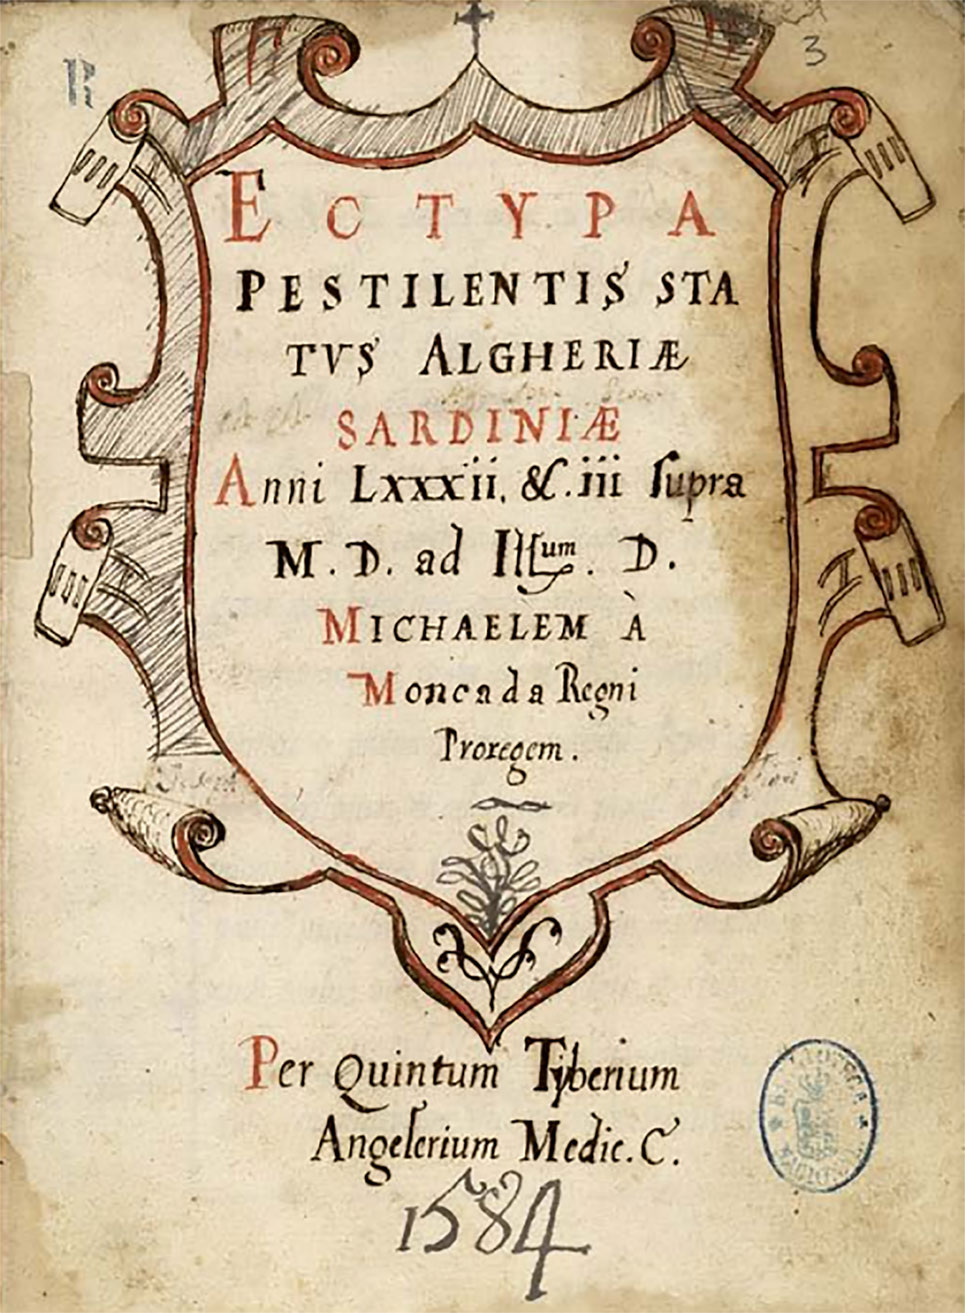 3
ECTYPA
PESTILENTIS STA
TVS ALGHERIÆ
SARDINIÆ
Anni Lxxxii, &. iii supra
M. D. ad Illum. D.
MICHAELEM À
Moncada Regni
Proregem.
Per Quintum Tyberium
Angelerium Medic. C.
1584